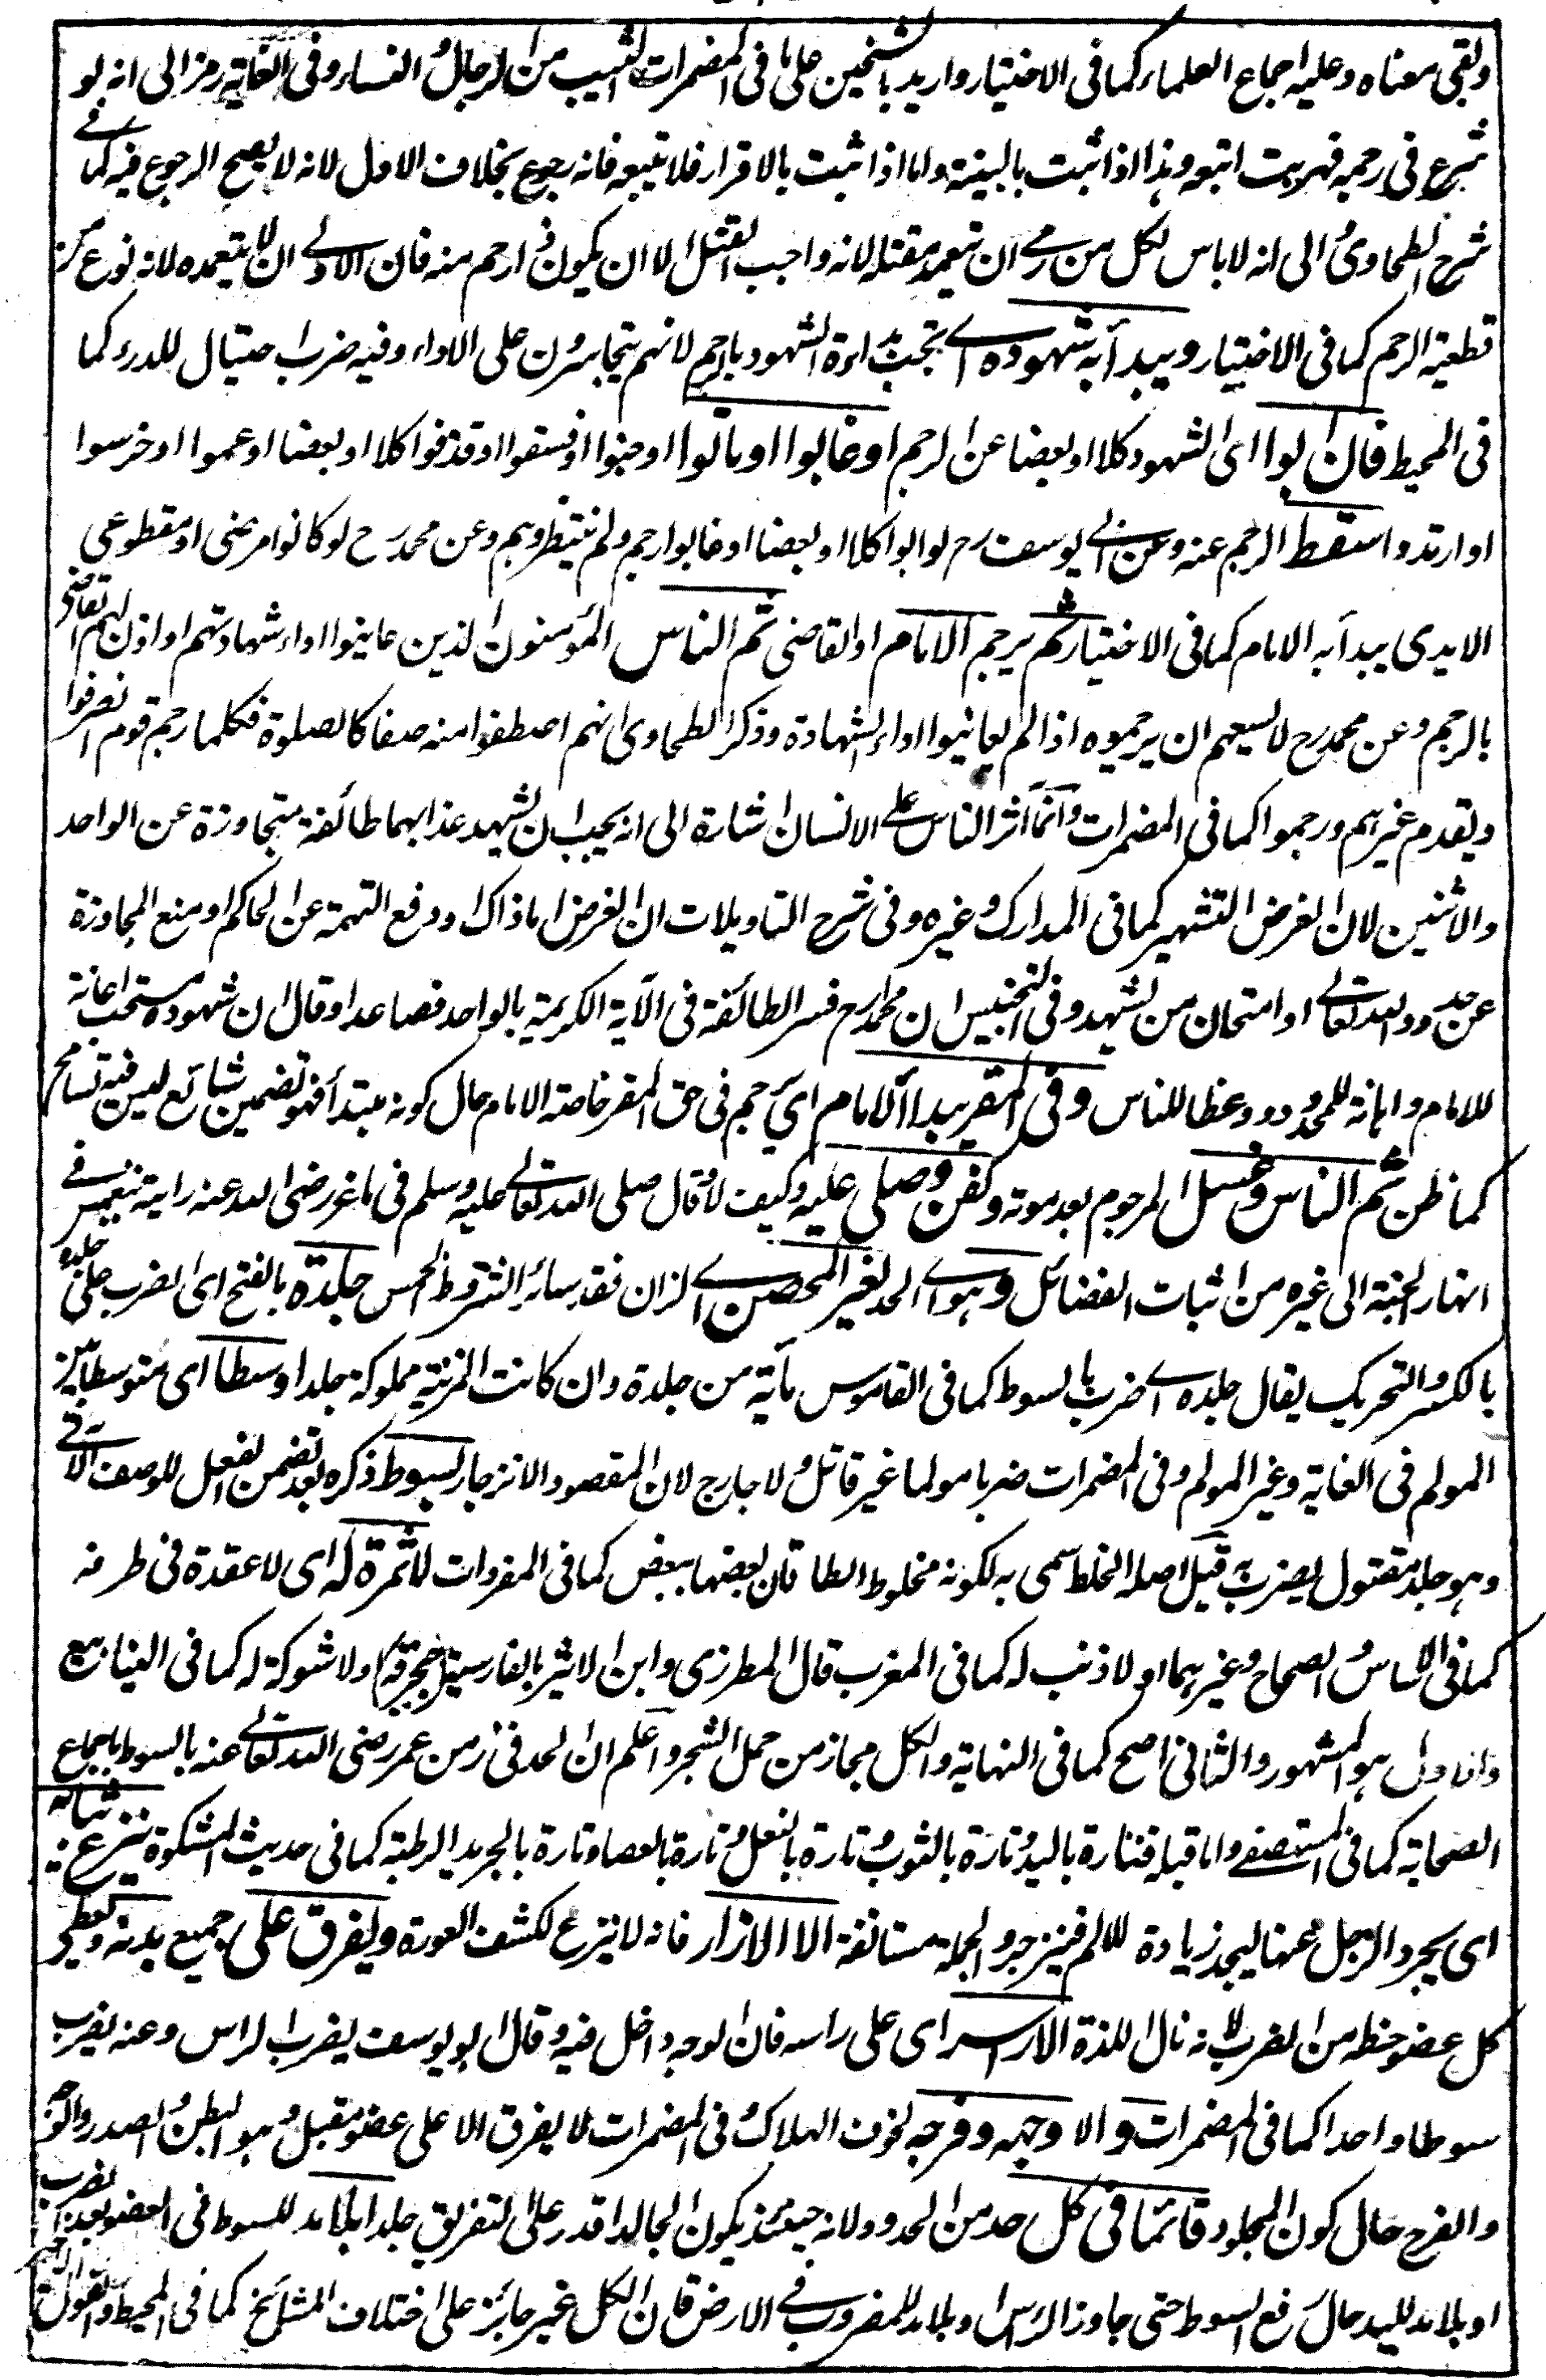 وبقى معناه وعليه اجماع العلماء كما فى الاختيار واريد بالشيخين على ما فى المضمرات الثيب من الرجال والنساء وفى الغاية رمز الى انه لو
شرع فى رجمه فهربت اتبعه وهذا اذا ثبت بالبينة واما اذا ثبت بالاقرار فلا يتبعه فانه رجوع بخلاف الاول لانه لا يصح الرجوع فيه كما فى
شرح الطحاوى والى انه لا باس لكل من رمى ان يتعمد مقتله لانه واجب القتل الا ان يكون ذا رحم منه فان الاولى ان لا يتعمده لانه نوع من
قطيعة الرحم كما فى الاختيار ويبدأ به شهوده اى تجب بداءة الشهود بالرجم لانهم يتجاسرون على الاداء وفيه ضرب احتيال للدرء كما
فى المحيط فان ابوا اى الشهود كلا او بعضا عن الرجم او غابوا او ماتوا او جنوا او فسقوا او قذفوا كلا او بعضا او عموا او خرسوا
او ارتدوا سقط الرجم عنه وعن ابى يوسف رح لو ابوا كلا او بعضا او غابوا رجم ولم ينتظروهم وعن محمد رح لو كانوا مرضى او مقطوعى
الايدى يبدأ به الامام كما فى الاختيار ثم يرجم الامام او القاضى ثم الناس المؤمنون الذين عاينوا اداء شهادتهم او اذن لهم القاضى
بالرجم وعن محمد رح لا يسعهم ان يرجموه اذا لم يعاينوا اداء الشهادة وذكر الطحاوى انهم اصطفوا منه صفا كالصلوة فكلما رجم قوم انصرفوا
ويقدم غيرهم ورجموا كما فى المضمرات وانما اثر الناس على الانسان اشارة الى انه يجب ان يشهد عذابهما طائفة متجاوزة عن الواحد
والاثنين لان الغرض التشهير كما فى المدارك وغيره وفى شرح التاويلات ان الغرض اما ذاك او دفع التهمة عن الحاكم او منع المجاوزة
عن حدود الله تعالى او امتحان من يشهد وفى التجنيس ان محمدا رح فسر الطائفة فى الآية الكريمة بالواحد فصاعدا وقال ان شهوده مستحب اعانة
للامام واهانة للمحدود ووعظا للناس وفى المقر يبدأ الامام اى يرجم فى حق المقر خاصة الامام حال كونه مبتدأ فهو تضمين شائع ليس فيه تسامح
كما ظن ثم الناس وغسل المرجوم بعد موته وكفن وصلى عليه وكيف لا وقال صلى الله تعالى عليه وسلم فى ماعز رضى الله عنه رايته ينغمس فى
انهار الجنة الى غيره من اثبات الفضائل وهو اى الحد لغير المحصن اى الزان فقد سائر الشروط الخمس جلدة بالفتح اى الضرب على جلده
بالكسر والتحريك يقال جلده اى ضربه بالسوط كما فى القاموس مأية من جلدة وان كانت المزنية مملوكة جلدا وسطا اى متوسطا بين
المولم فى الغاية وغير المولم وفى المضمرات ضربا مولما غير قاتل ولا جارح لان المقصود الانزجار بسوط ذكره بعد تضمن الفعل للوصف الآتى
وهو جلد مفتول يضرب به قيل اصله الخلط سمى به لكونه مخلوط الطاقات بعضها ببعض كما فى المفردات لا ثمرة له اى لا عقدة فى طرفه
كما فى الاساس والصحاح وغيرهما او لا ذنب له كما فى المغرب قال المطرزى وابن الاثير بالفارسية ولا شوكة له كما فى الينابيع
والاول هو المشهور والثانى اصح كما فى النهاية والكل مجاز من حمل الشجر واعلم ان الحد فى زمن عمر رضى الله تعالى عنه بالسوط باجماع
الصحابة كما فى المستصفى واما قبله فتارة باليد وتارة بالثوب وتارة بالنعل وتارة بالعصا وتارة بالجريد الرطبة كما فى حديث المشكوة ينزع عنه ثيابه
اى يجرد الرجل عنها ليجد زيادة الالم فينزجر والجملة مستانفة الا الازار فانه لا ينزع لكشف العورة ويفرق على جميع بدنه ويعطى
كل عضو حظه من الضرب لانه نال اللذة الا راسه اى على راسه فان الوجه داخل فيه وقال ابو يوسف يضرب الراس وعنه يضرب
سوطا واحدا كما فى المضمرات والا وجهه وفرجه لخوف الهلاك وفى المضمرات لا يفرق الا على عضو مقبل وهو البطن والصدر والوجه
والفرج حال كون المجلود قائما فى كل حد من الحدود لانه حينئذ يكون الجالد اقدر على التفريق جلدا بلا مد للسوط فى العضو بعد الضرب
او بلا مد لليد حال رفع السوط حتى جاوز الراس او بلا مد للمضروب فى الارض فان الكل غير جائز على اختلاف المشائخ كما فى المحيط